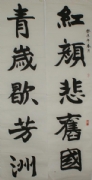 紅顏悲舊國
青歲歇芳洲